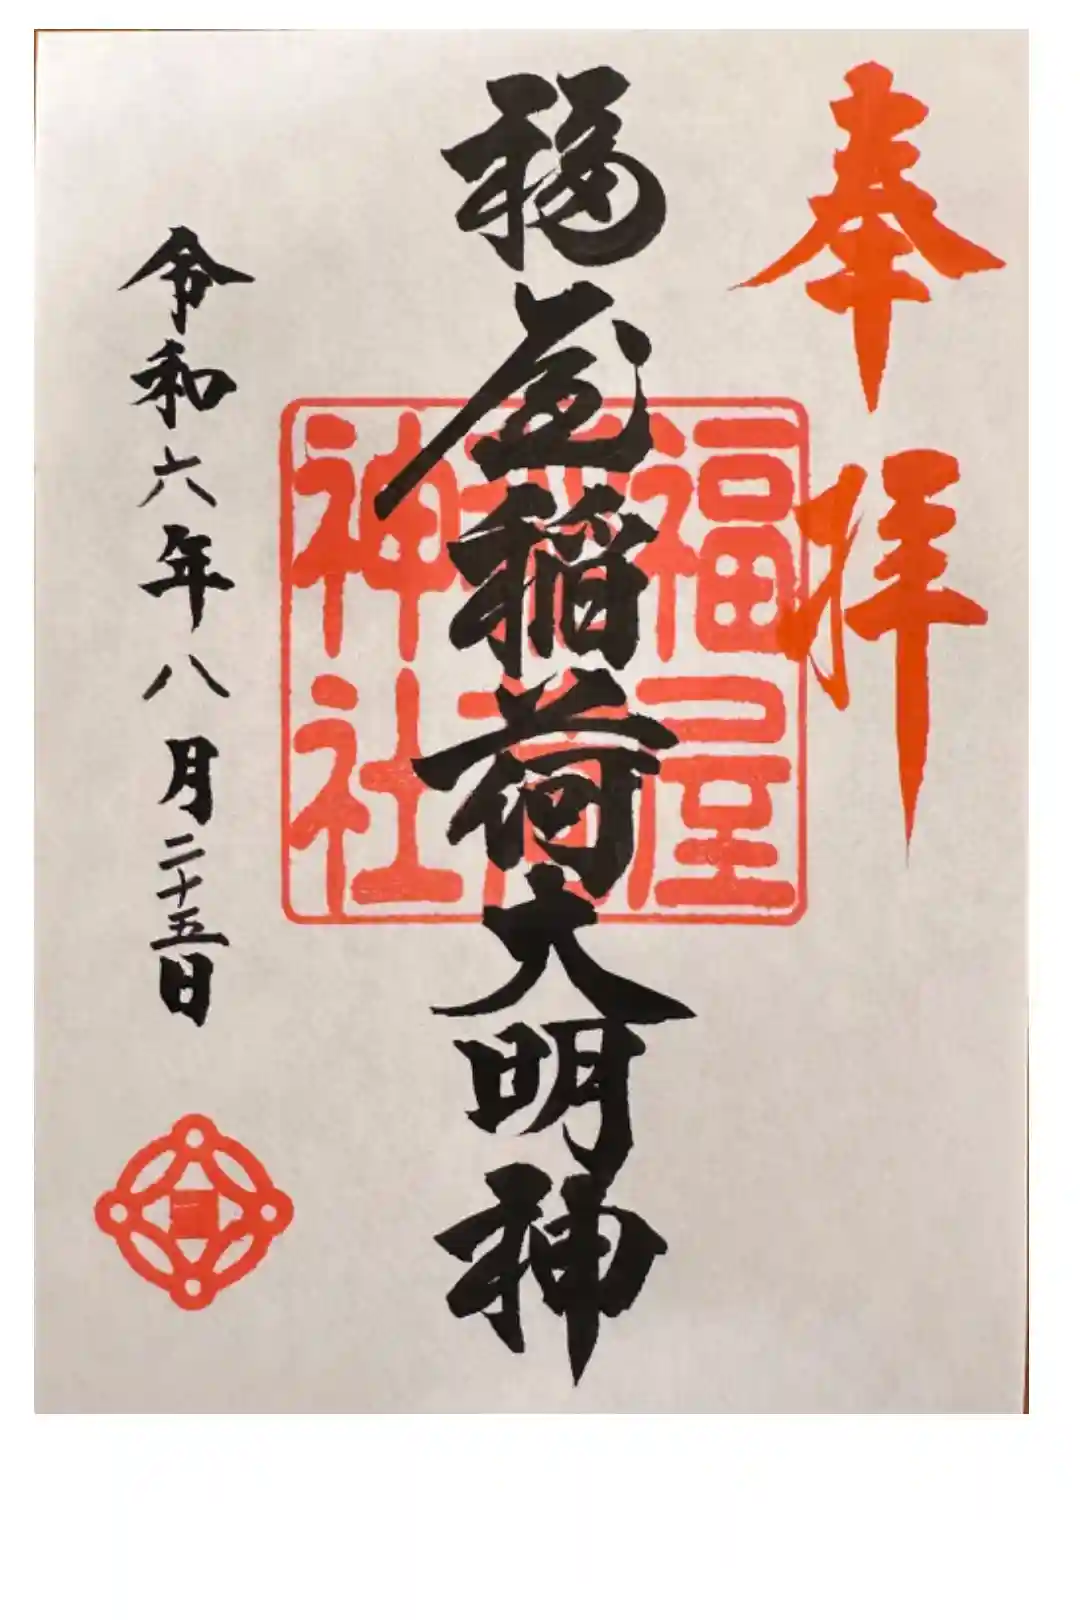 奉拝
福屋稲荷大明神
福屋
稲荷
神社
令和六年八月二十五日